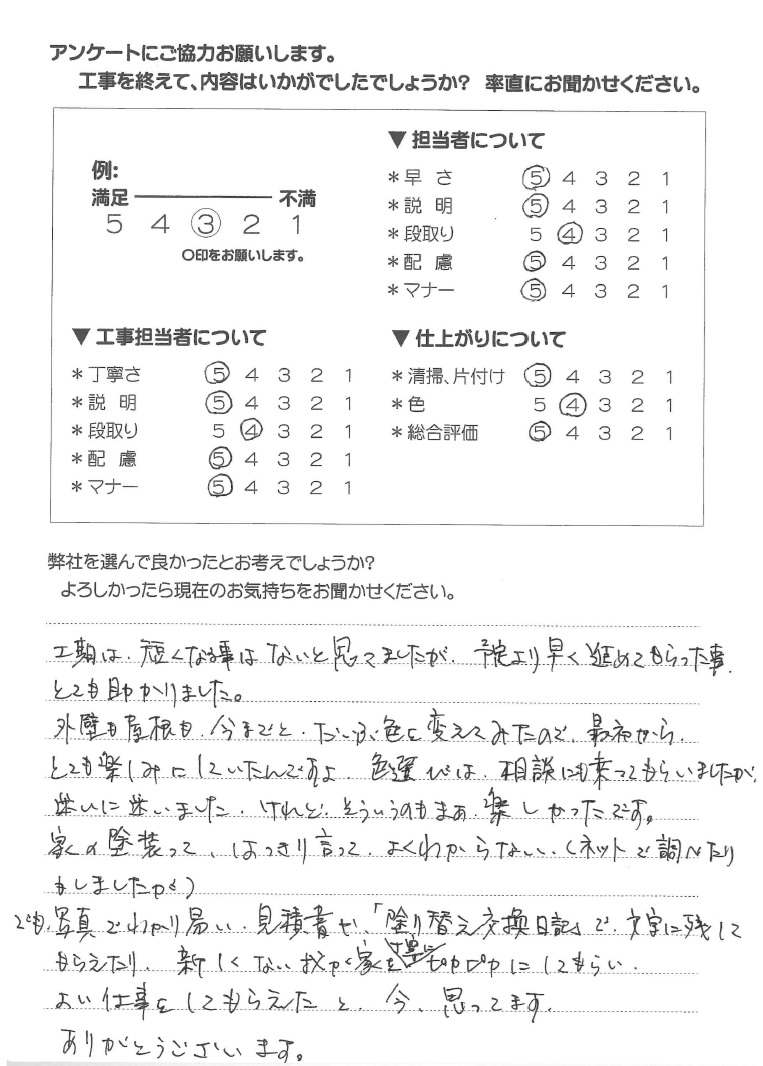 アンケートにご協力お願いします。
工事を終えて、内容はいかがでしたでしょうか? 率直にお聞かせください。
例:
満足 不満
5 4 3 2 1
○印をお願いします。
▼ 担当者について
*早 さ 5 4 3 2 1
*説 明 5 4 3 2 1
*段取り 5 4 3 2 1
*配 慮 5 4 3 2 1
*マナー 5 4 3 2 1
▼ 工事担当者について
*丁寧さ 5 4 3 2 1
*説 明 5 4 3 2 1
*段取り 5 4 3 2 1
*配 慮 5 4 3 2 1
*マナー 5 4 3 2 1
▼ 仕上がりについて
*清掃、片付け 5 4 3 2 1
*色 5 4 3 2 1
*総合評価 5 4 3 2 1
弊社を選んで良かったとお考えでしょうか?
よろしかったら現在のお気持ちをお聞かせください。
工期は、短くなる事はないと思ってましたが、予定より早く進めてもらった事、
とても助かりました。
外壁も屋根も、今までと、だいぶ色を変えてみたので、最初から、
とても楽しみにしていたんですよ、色選びは、相談にも乗ってもらいましたが、
迷いに迷いました、けれど、そういうのもまぁ、楽しかったです。
家の塗装って、はっきり言って、よくわからない、(ネットで調べたり
もしましたが)
でも、写真でわかり易い、見積書や、「塗り替え交換日記」で、文字に残して
もらえたり、新しくない我が家を丁寧にピカピカにしてもらい、
よい仕事をしてもらえたと、今、思ってます。
ありがとうございます。